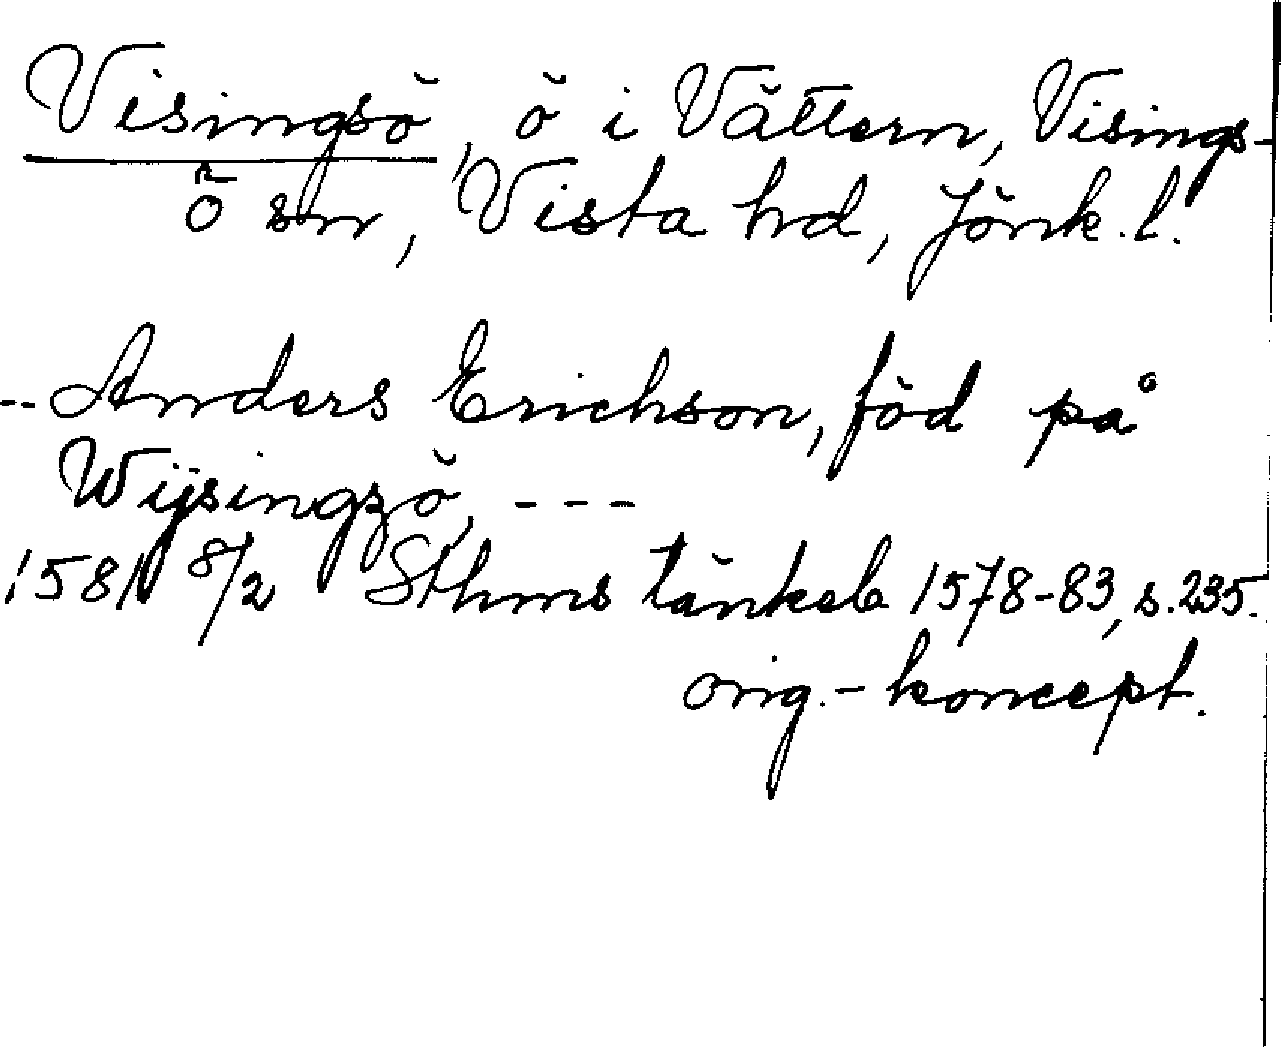 Visingsö, ö i Vättern, Visings-
ö sn, Vista hd, Jönk. l.
-- Anders Erichson, föd på
Wijsingzö, - - -
1581 8/2 Sthms tänkeb 1578-83, s. 235.
orig.- koncept.